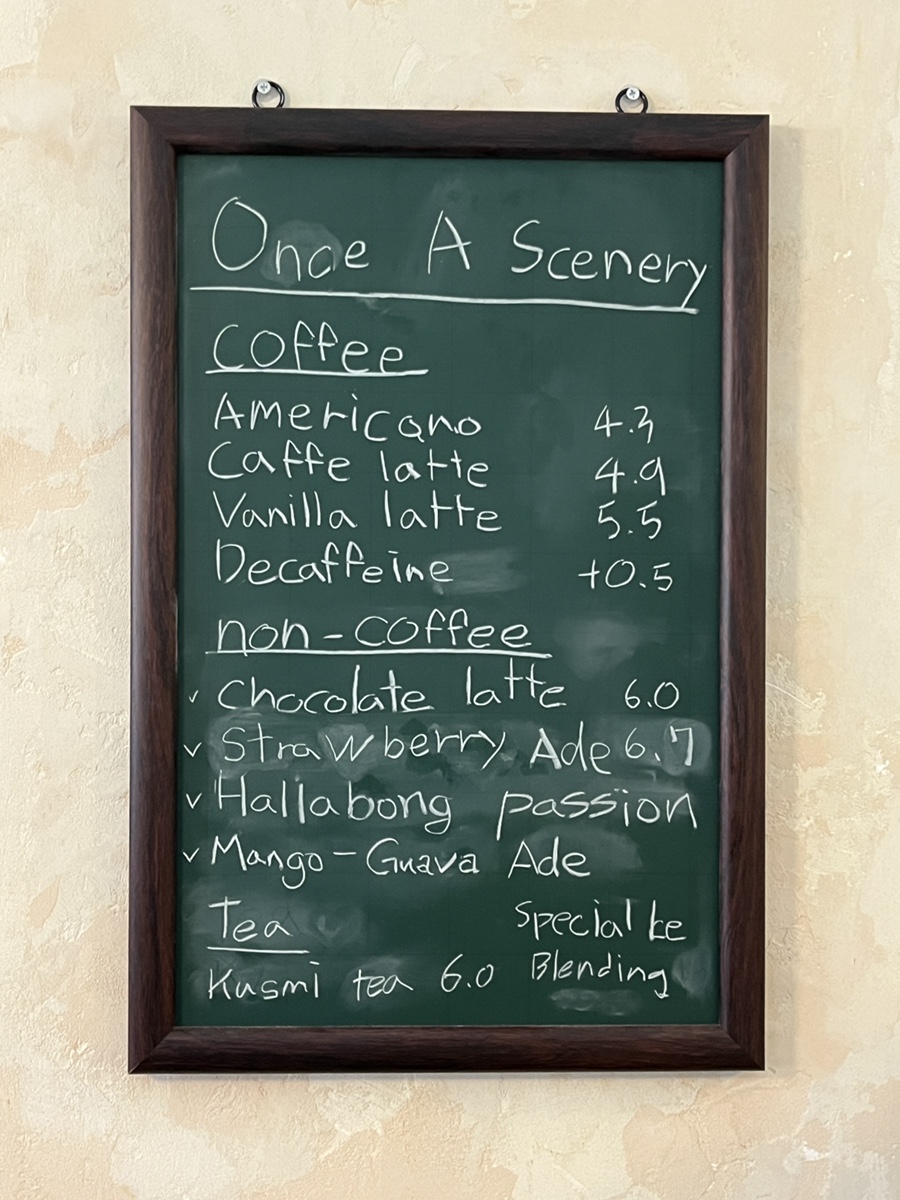 Once A Scenery
Coffee
Americano 4.3
Caffe latte 4.9
Vanilla latte 5.5
Decaffeine +0.5
non-coffee
✓ Chocolate latte 6.0
✓ Strawberry Ade 6.7
✓ Hallabong passion
✓ Mango-Guava Ade
Tea
Kusmi tea 6.0
Special
Blending